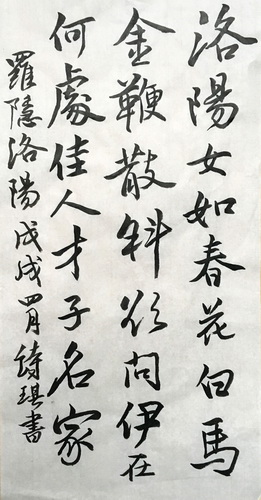 洛陽女如春花白馬
金鞭散斜欲問伊在
何處佳人才子名家
羅隱洛陽戊戌四月詩琪書